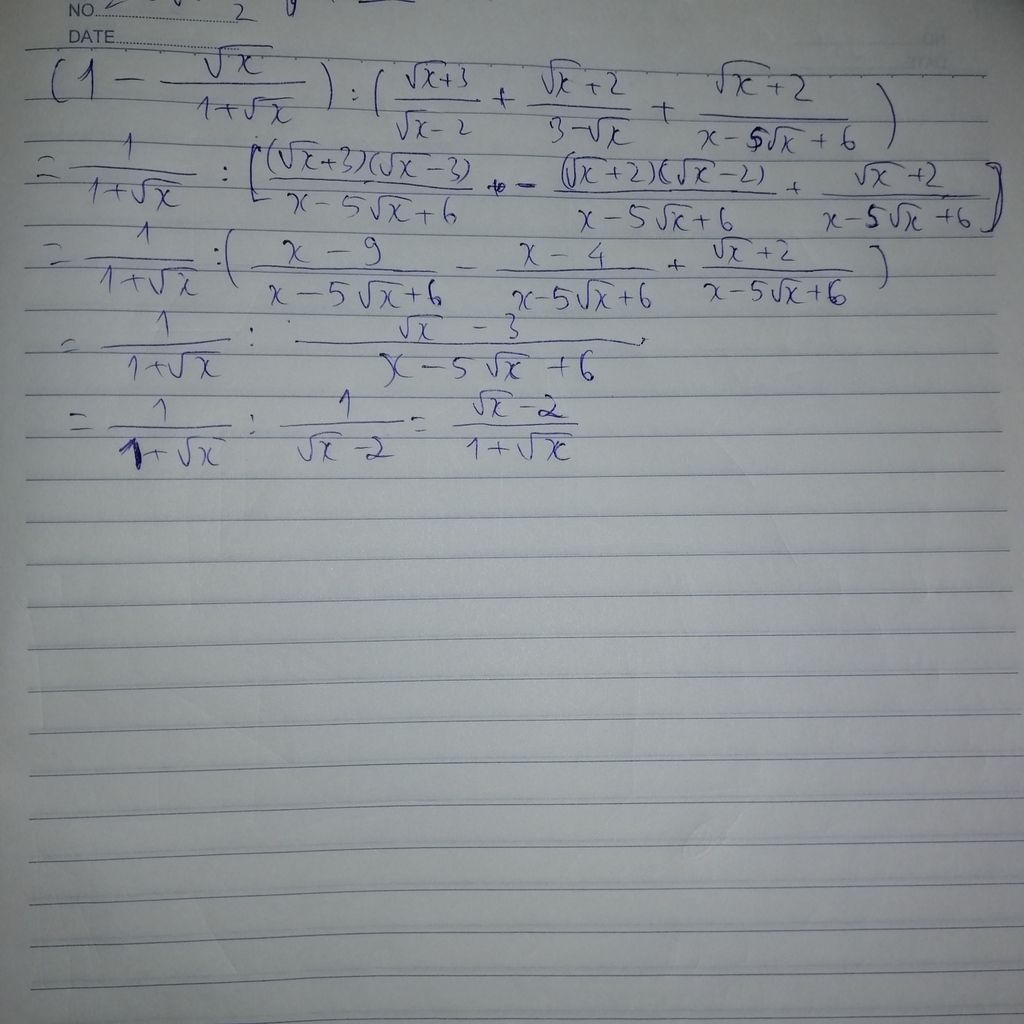 NO. 2
DATE
(1 - √x/(1+√x)) : ((√x+3)/(√x-2) + (√x+2)/(3-√x) + (√x+2)/(x-5√x+6))
= 1/(1+√x) : [(√x+3)(√x-3)/(x-5√x+6) - (√x+2)(√x-2)/(x-5√x+6) + (√x+2)/(x-5√x+6)]
= 1/(1+√x) : ((x-9)/(x-5√x+6) - (x-4)/(x-5√x+6) + (√x+2)/(x-5√x+6))
= 1/(1+√x) : (√x-3)/(x-5√x+6)
= 1/(1+√x) : 1/(√x-2) = (√x-2)/(1+√x)